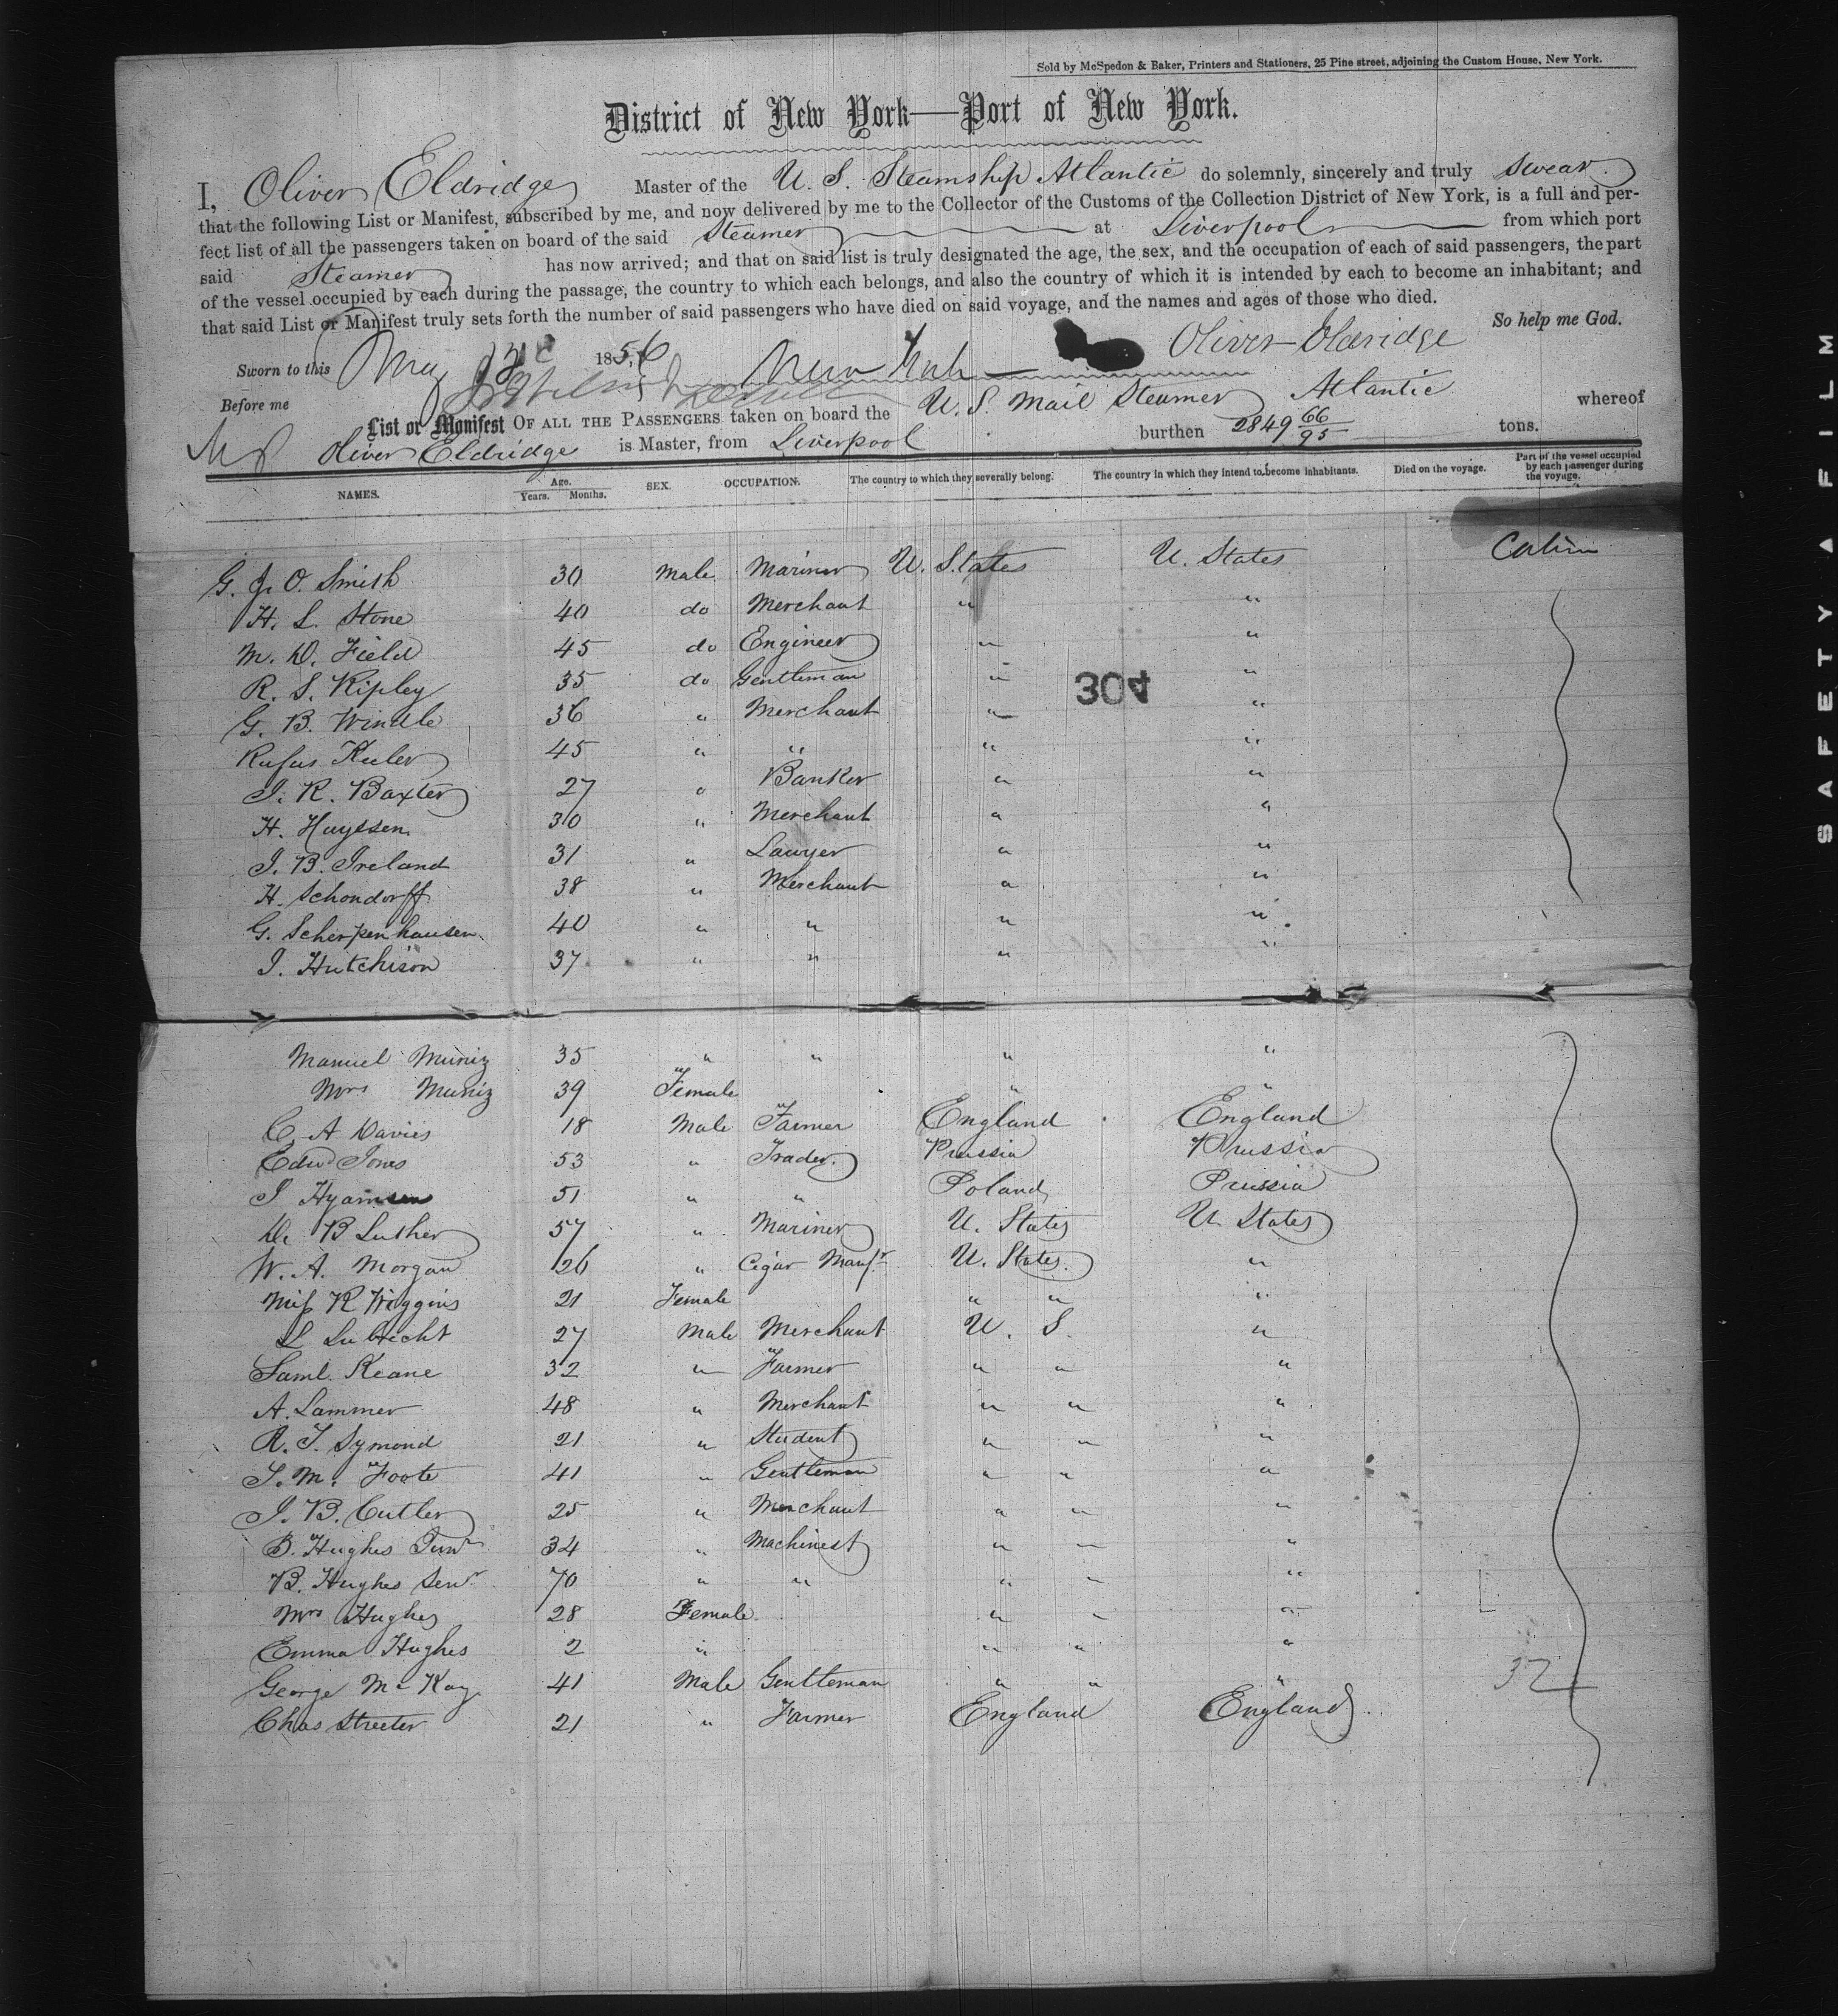 Sold by McSpedon & Baker, Printers and Stationers, 25 Pine street, adjoining the Custom House, New York.
District of New York—Port of New York.
I, Oliver Eldridge Master of the U. S. Steamship Atlantic do solemnly, sincerely and truly swear
that the following List or Manifest, subscribed by me, and now delivered by me to the Collector of the Customs of the Collection District of New York, is a full and per-
fect list of all the passengers taken on board of the said Steamer at Liverpool from which port
said Steamer has now arrived; and that on said list is truly designated the age, the sex, and the occupation of each of said passengers, the part
of the vessel occupied by each during the passage, the country to which each belongs, and also the country of which it is intended by each to become an inhabitant; and
that said List or Manifest truly sets forth the number of said passengers who have died on said voyage, and the names and ages of those who died.
So help me God.
Sworn to this May 1856 New York Oliver Eldridge
Before me
List or Manifest OF ALL THE PASSENGERS taken on board the U. S. Mail Steamer Atlantic whereof
Oliver Eldridge is Master, from Liverpool burthen 2849 66/95 tons.
NAMES. Age. Years. Months. SEX. OCCUPATION. The country to which they severally belong. The country in which they intend to become inhabitants. Died on the voyage. Part of the vessel occupied by each passenger during the voyage.
G. J. O. Smith 30 Male Mariner U. States U. States Cabin
H. L. Stone 40 do Merchant " "
M. D. Field 45 do Engineer " "
R. S. Ripley 35 do Gentleman " "
304
G. B. Windle 36 " Merchant " "
Rufus Keeler 45 " " " "
J. R. Baxter 27 " Banker " "
H. Huyssen 30 " Merchant " "
J. B. Ireland 31 " Lawyer " "
H. Schondorff 38 " Merchant " "
G. Scherpenhausen 40 " " " "
J. Hutchison 37 " " " "
Manuel Muniz 35 " " " "
Mrs Muniz 39 Female " "
C. A Davies 18 Male Farmer England England
Edwd Jones 53 " Trader Prussia Prussia
J Hyamson 51 " " Poland Prussia
D. B Luther 57 " Mariner U. States U. States
W. A. Morgan 26 " Cigar Manfr U. States "
Miss R Wiggins 21 Female " " "
L Lubrecht 27 Male Merchant U. S. "
Saml. Keane 32 " Farmer " " "
A. Lammer 48 " Merchant " " "
R. T. Symond 21 " Student " " "
T. M. Foote 41 " Gentleman " " "
J. B. Cutler 25 " Merchant " " "
B. Hughes Junr 34 " Machinest " " "
B. Hughes Senr 70 " " " " "
Mrs Hughes 28 Female " " "
Emma Hughes 2 " " " "
George McKay 41 Male Gentleman " " " 32
Chas Streeter 21 " Farmer England England
SAFETY FILM